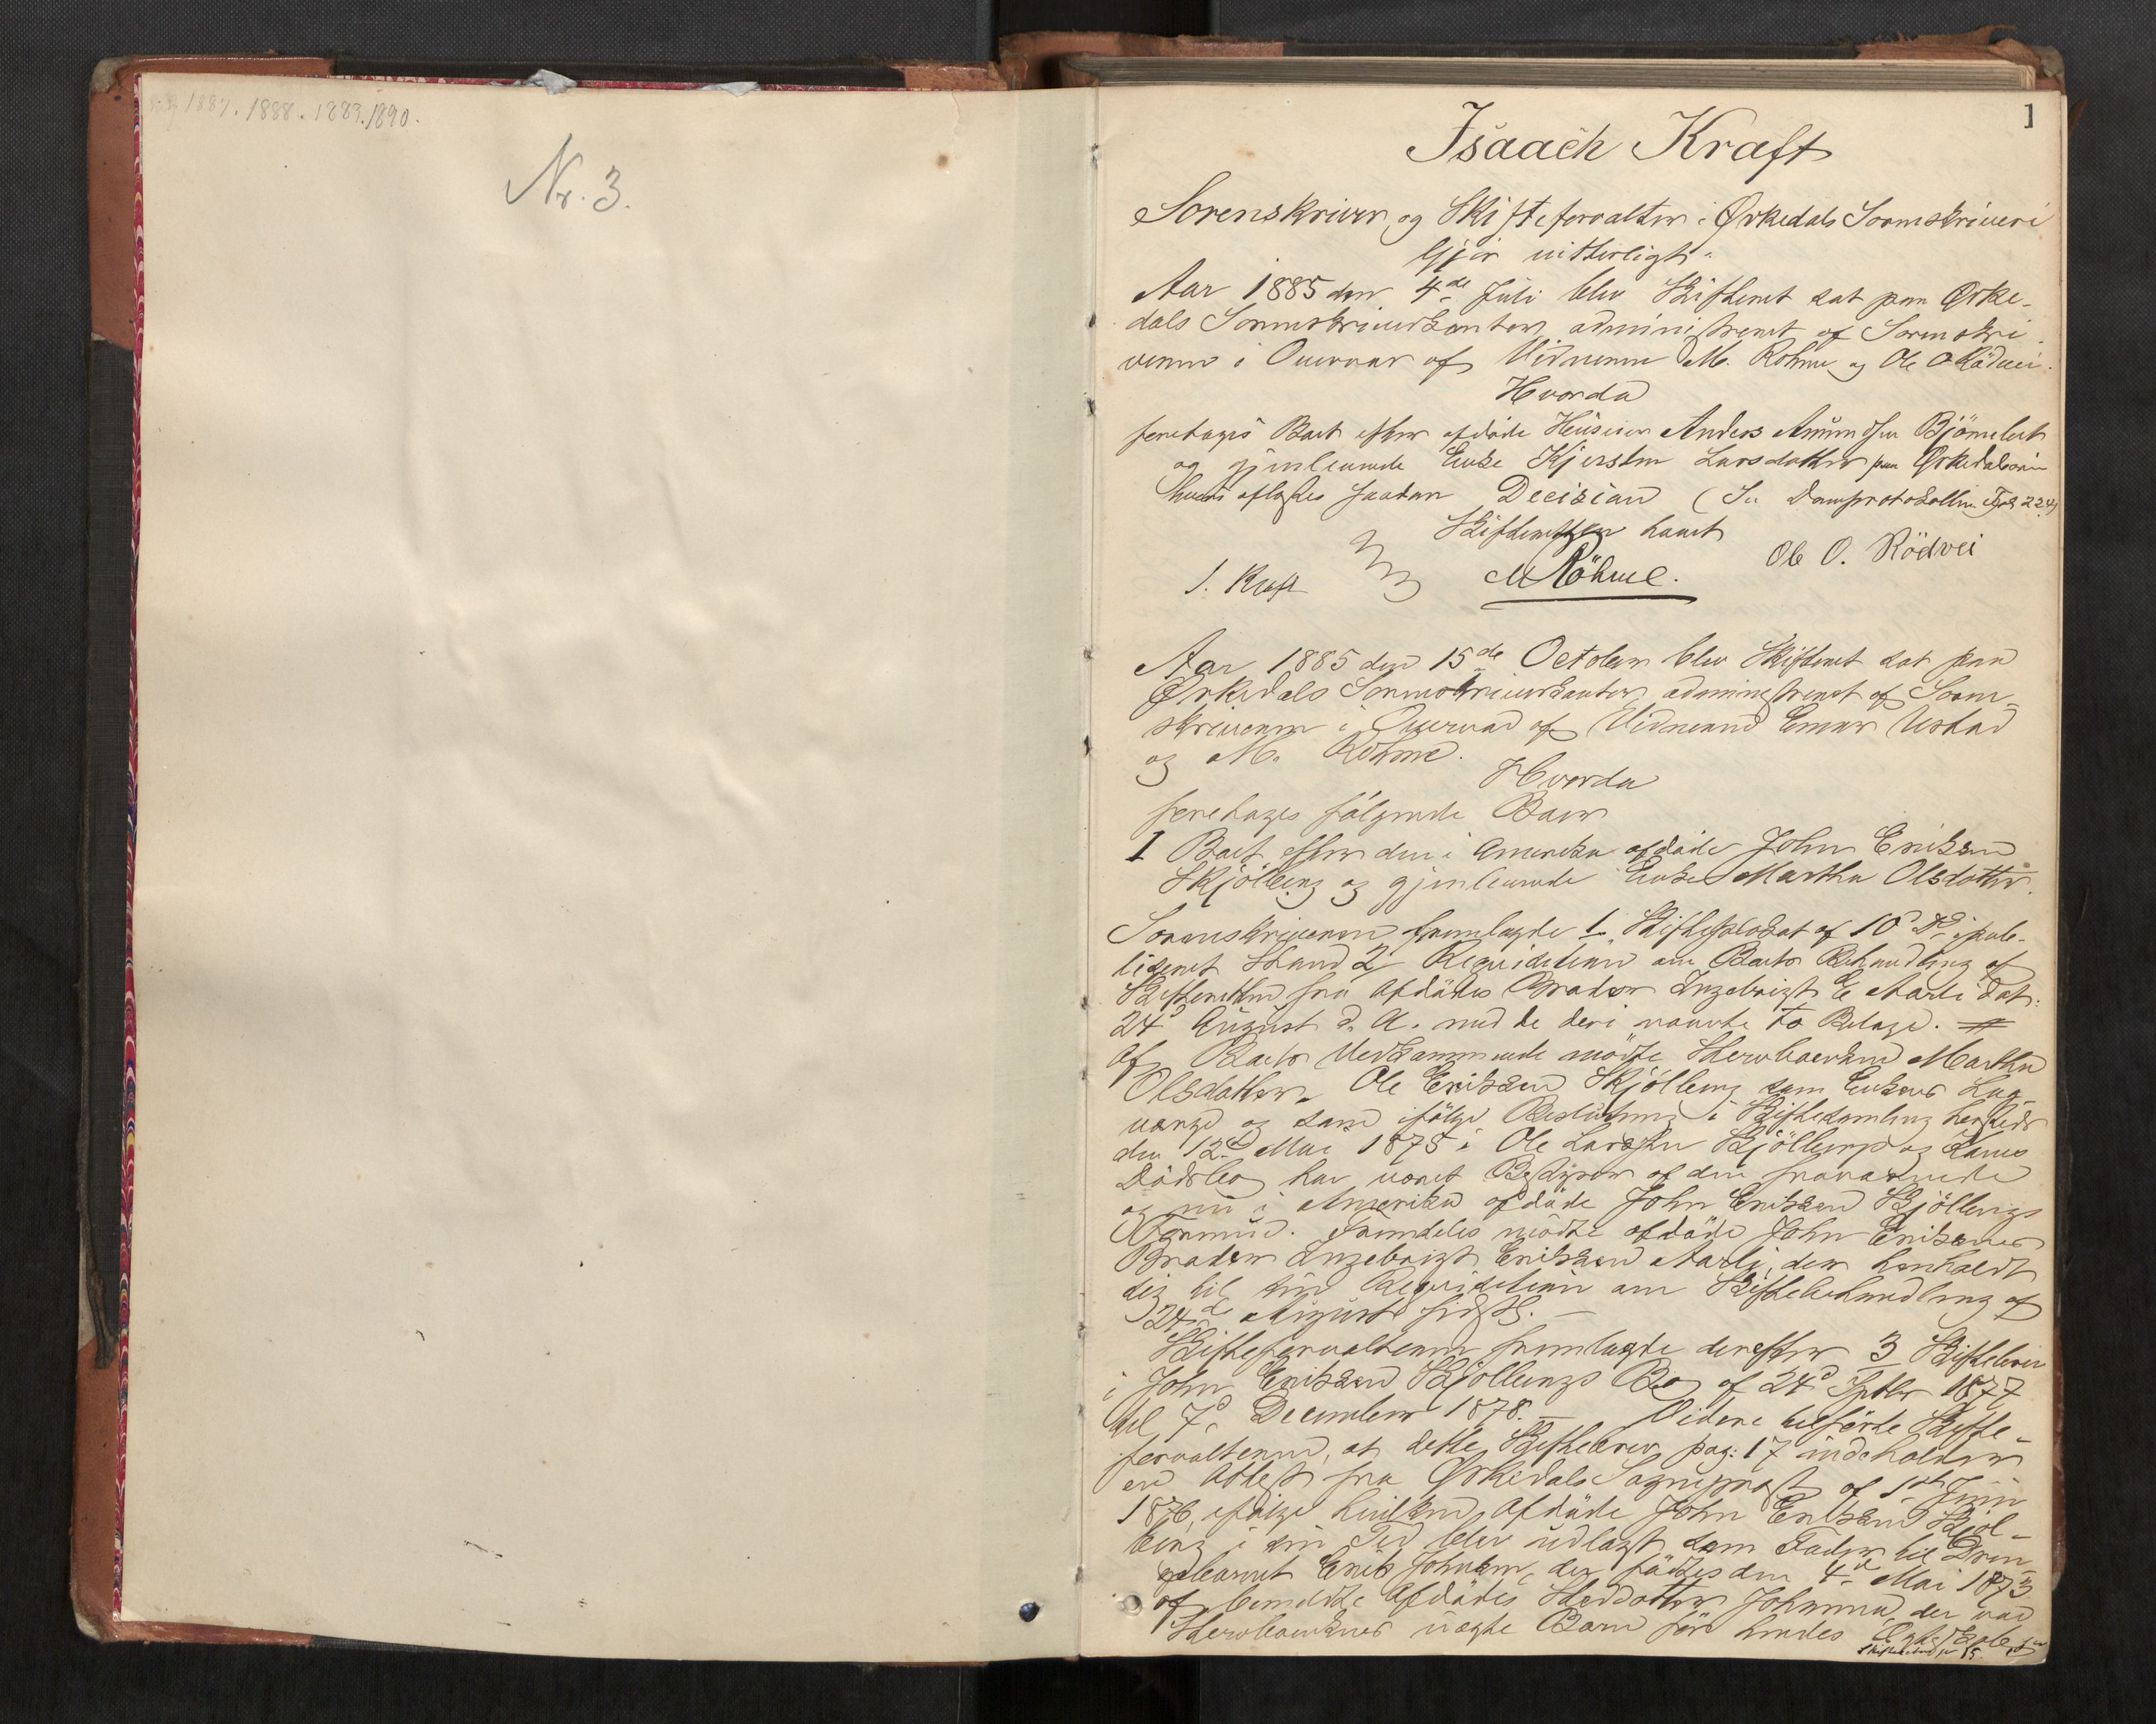 1887. 1888. 1889. 1890.
Nr. 3.
1
Isaach Kraft
Sorenskriver og Skifteforvalter i Ørkedals Sorenskriveri
Gjør vitterligt:
Aar 1885 den 4de Juli blev Skifteret sat paa Ørke-
dals Sorenskriverkontor, administreret af Sorenskri-
veren i Overvær af Vidnerne M. Röhme og Ole O Rödvei.
Hvorda
foretoges Boet efter afdöde Huusmand Anders Amundsen Björnebet
og gjenlevende Enke Kjersten Larsdatter paa Ørkedalsøren
hvori aflagdes saadan Decision (Se Domsprotokollen Fol 224)
Skifteretten hævet
I. Kraft M Röhme. Ole O. Rödvei
Aar 1885 den 15de October blev Skifteret sat paa
Ørkedals Sorenskriverkontor, administreret af Soren-
skriveren i Overvær af Vidnerne Einar Ustad
og M. Röhme.
Hvorda
foretoges følgende Boer
1 Boet efter den i Amerika afdöde John Eriksen
Skjölleng og gjenlevende Enke Martha Olsdatter.
Sorenskriveren fremlagde 1. Skifteplakat af 10 d. pub-
liceret samt 2 Requisition om Boets Behandling af
Skifteretten fra Afdödes Broder Ingebrigt E Aarli dat:
24d August d. A. med de deri nævnte to Bilage.
Af Boets Vedkommende mödte Sterboenken Martha
Olsdatter, Ole Eriksen Skjölleng som Enkens Lag-
værge og som ifölge Beslutning i Skiftesamling
den 12d Mai 1875 i Ole Larssen Skjöllengs og Kones
Dödsbo har været Bestyrer af den fraværende
og nu i Amerika afdöde John Eriksen Skjöllengs
Formue. Fremdeles mödte afdöde John Eriksens
Broder Ingebrigt Eriksen Aarli, der henholdt
sig til sin Requisition om Skiftebehandling af
24de August sidstl.
Skifteforvalteren fremlagde derefter 3 Skiftebrev
i John Eriksen Skjöllengs Bo af 24d Septbr 1877
til 7d December 1878. Videre tilförte Skifte-
forvalteren, at dette Skiftebrev pag: 17 indeholder
en Attest fra Ørkedals Sogneprest af 1ste Juni
1876, ifølge hvilken Afdöde John Eriksen Skjöl-
leng i sin Tid blev udlagt som Fader til Dren-
gebarnet Erik Johnsen, der fødtes den 4de Mai 1873
af bemeldte Afdödes Steddatter Johanna, der var
Sterboenkens uægte Barn før hendes Ægteskab